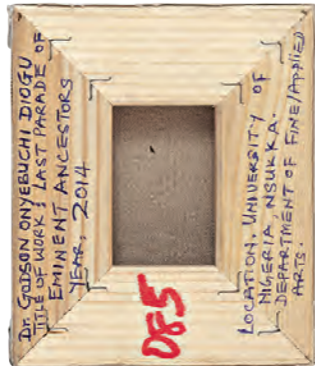 Dr. GODSON ONYEBUCHI DIOGU
TITLE OF WORK: LAST PARADE OF
EMINENT ANCESTORS
YEAR, 2014
LOCATION, UNIVERSITY OF
NIGERIA, NSUKKA.
DEPARTMENT OF FINE/APPLIED
ARTS.
085